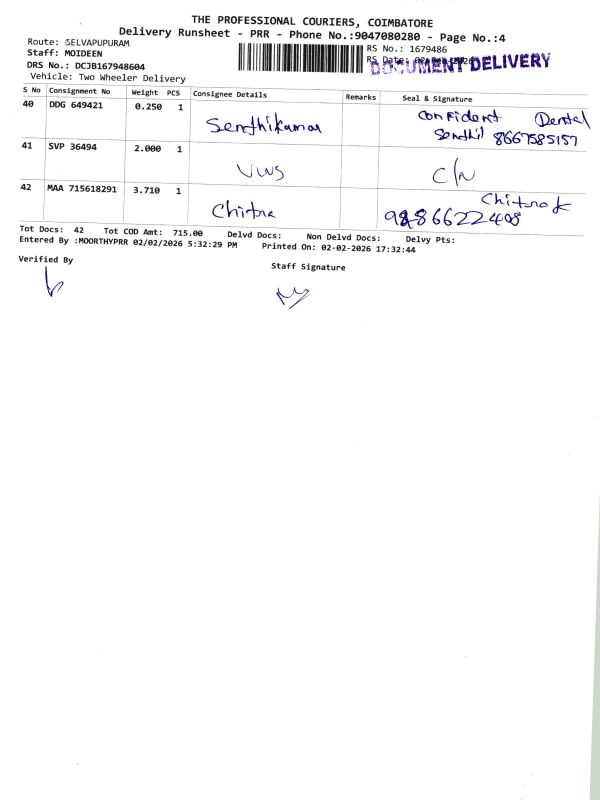 THE PROFESSIONAL COURIERS, COIMBATORE
Delivery Runsheet - PRR - Phone No.:9047080280 - Page No.:4
Route: SELVAPUPURAM
RS No.: 1679486
Staff: MOIDEEN
RS Date: 02
DOCUMENT DELIVERY
DRS No.: DCJB167948604
Vehicle: Two Wheeler Delivery
S No Consignment No Weight PCS Consignee Details Remarks Seal & Signature
40 DDG 649421 0.250 1 Senthikumar Confident Dental
Senthil 8667585157
41 SVP 36494 2.000 1 VWS C/N
42 MAA 715618291 3.710 1 Chitra Chitra k
Tot Docs: 42 Tot COD Amt: 715.00 Delvd Docs: Non Delvd Docs: Delvy Pts:
Entered By :MOORTHYPRR 02/02/2026 5:32:29 PM Printed On: 02-02-2026 17:32:44
Verified By
Staff Signature